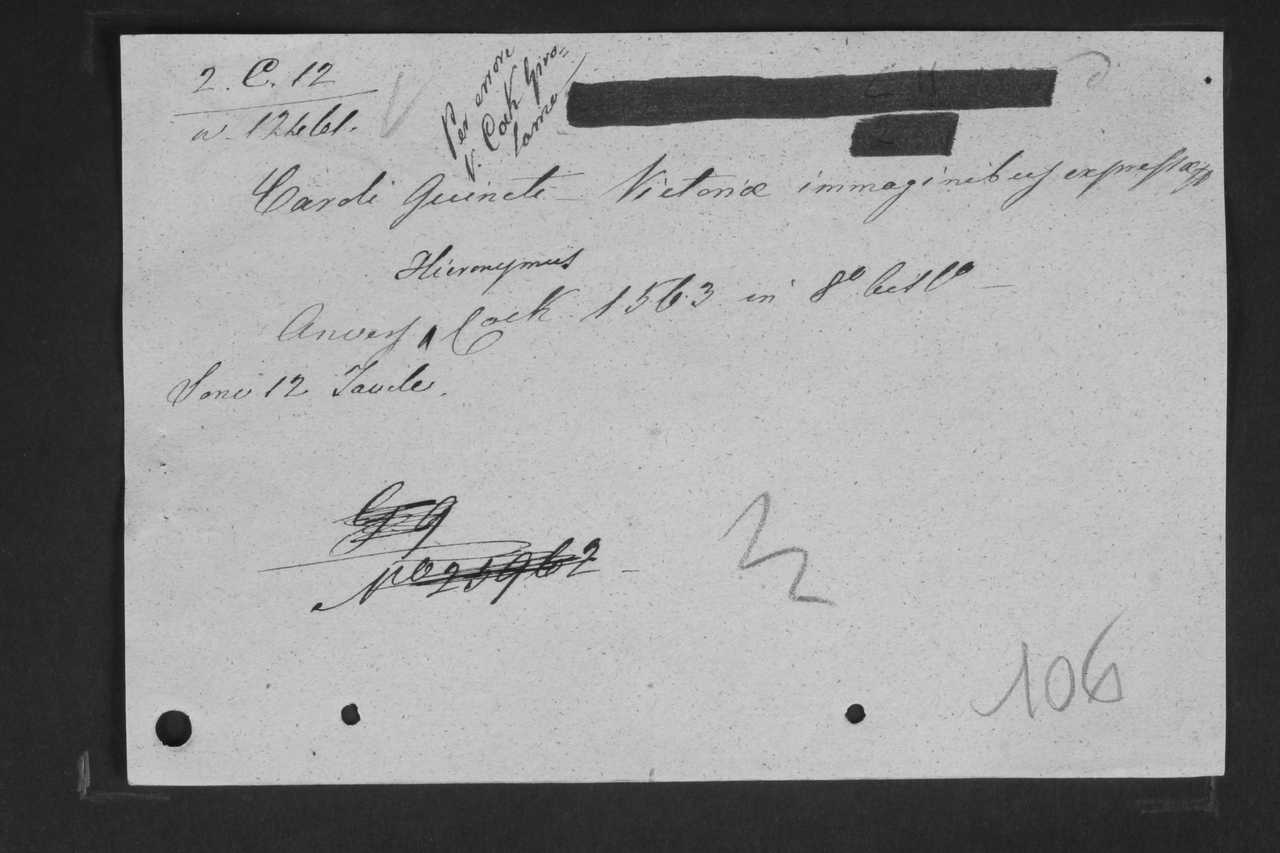 2. C. 12
Per errore
V. Cock Giro=
lamo
Caroli Quincti - Victoriæ immaginibus expressæ
Hieronymus
Anvers Cock 1563 in 8º
Sono 12 Tavole.
Nº 25962
106